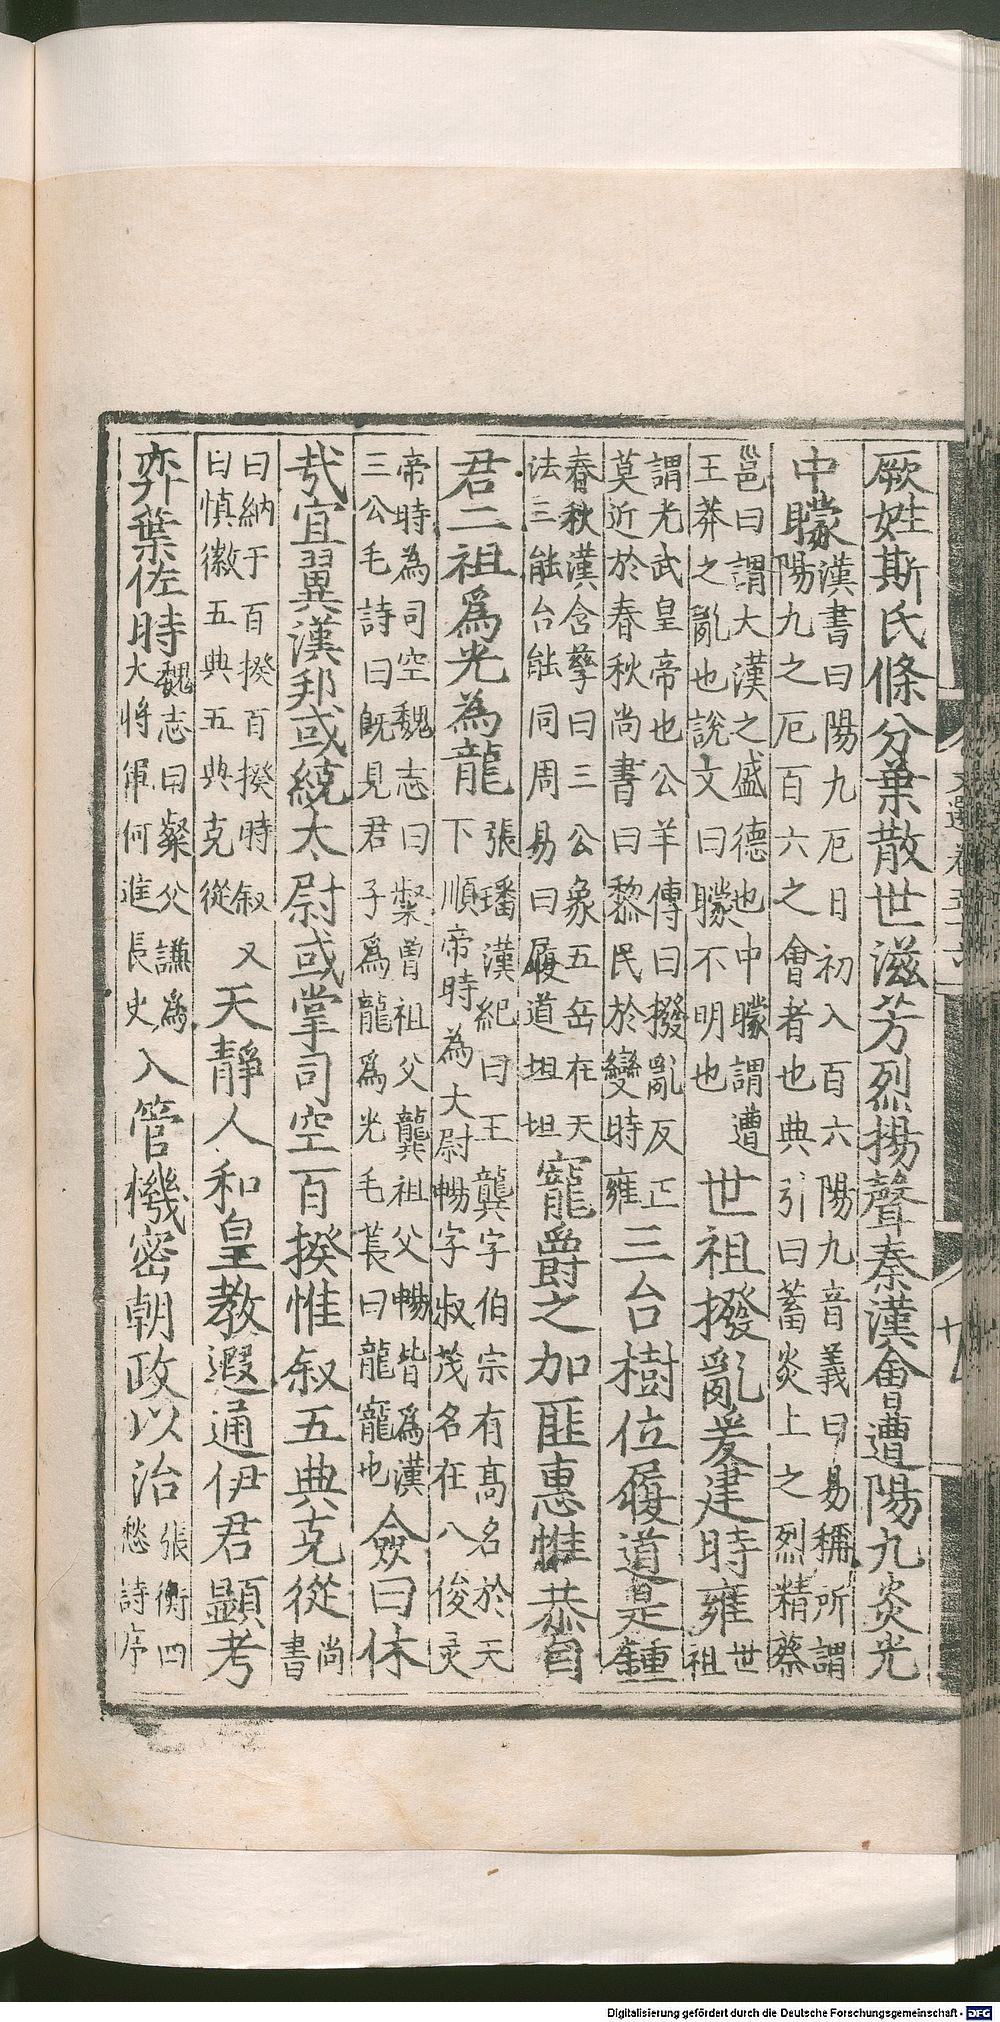 厥姓斯氏條分葉散世滋芳烈揚聲秦漢會遭陽九炎光
中矇漢書曰陽九厄日初入百六陽九音義曰易稱所謂
陽九之厄百六之會者也典引曰蓄炎上之烈精蔡
邕曰謂大漢之盛德也中矇謂遭
王莽之亂也說文曰矇不明也
世祖撥亂爰建時雍世
祖
謂光武皇帝也公羊傳曰撥亂反正
莫近於春秋尚書曰黎民於變時雍
三台樹位履道是鍾
春秋漢含孳曰三公象五岳在天
法三能台能同周易曰履道坦坦
寵爵之加匪惠惟恭自
君二祖爲光為龍張璠漢紀曰王龔字伯宗有高名於天
下順帝時為大尉暢字叔茂名在八俊灵
帝時為司空魏志曰粲曾祖父龔祖父暢皆爲漢
三公毛詩曰旣見君子爲龍爲光毛萇曰龍寵也
僉曰休
哉宜翼漢邦或統太尉或掌司空百揆惟叙五典克從尚
書
曰納于百揆百揆時叙又
曰慎徽五典五典克從
天靜人和皇教遐通伊君顯考
弈葉佐時魏志曰粲父謙爲
大將軍何進長史
入管機密朝政以治張衡四
愁詩序
Digitalisierung gefördert durch die Deutsche Forschungsgemeinschaft - DFG